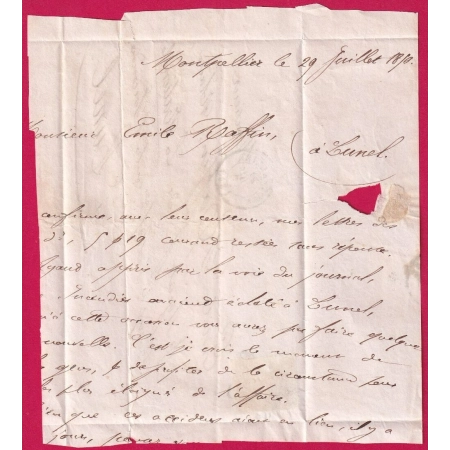 Montpellier le 29 Juillet 18
onsieur Emile Raffin,
à Lunel.
confirme avec leur contenu, mes lettres des
5 & 19 courant restées sans réponse.
Ayant appris par la voix du journal,
Incendies avaient éclaté à Lunel,
cette occasion vous avez pu faire quelque
nouvelle. C'est je crois le moment de
de la circonstance sans
plus éloigné de l'affaire.
que ces accidents aient eu lieu, il y a
jours,